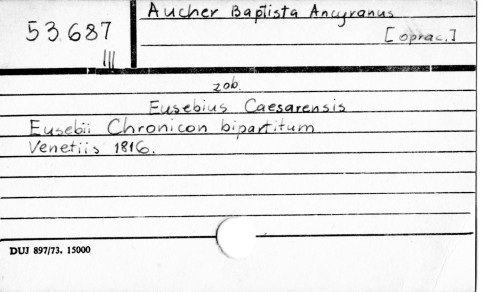 53.687
III
Aucher Baptista Ancyranus
[oprac.]
zob.
Eusebius Caesarensis
Eusebii Chronicon bipartitum
Venetiis 1816.
DUJ 897/73. 15000